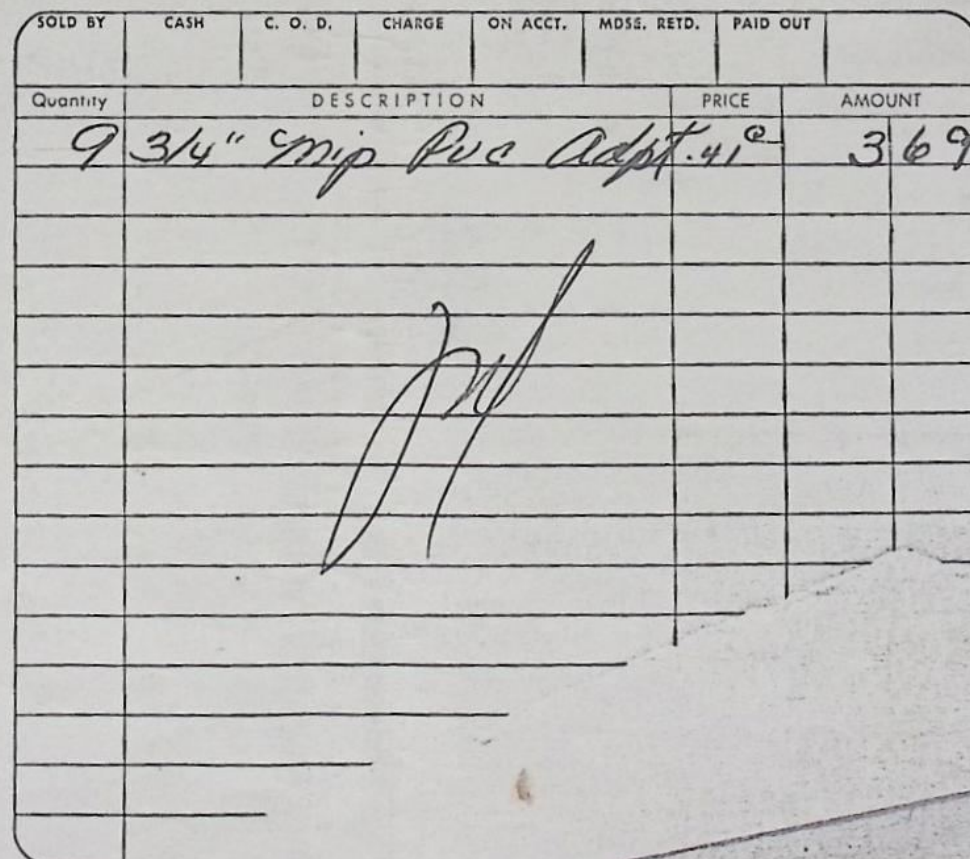 SOLD BY CASH C. O. D. CHARGE ON ACCT. MDSE. RETD. PAID OUT
Quantity DESCRIPTION PRICE AMOUNT
9 3/4" Mip Pvc Adpt .41 @ 3 69